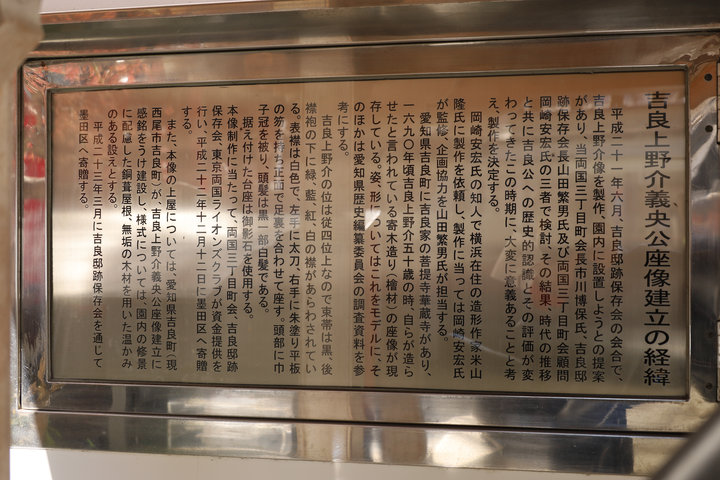 吉良上野介義央公座像建立の経緯
平成二十一年六月、吉良邸跡保存会の会合で、
吉良上野介像を製作、園内に設置しようとの提案
があり、当両国三丁目町会長市川博保氏、吉良邸
跡保存会長山田繁男氏及び両国三丁目町会顧問
岡崎安宏氏の三者で検討、その結果、時代の推移
と共に吉良公への歴史的認識とその評価が変
わってきたこの時期に、大変に意義あることと考
え、製作を決定する。
岡崎安宏氏の知人で横浜在住の造形作家米山
隆氏に製作を依頼し、製作に当っては岡崎安宏氏
が監修、企画協力を山田繁男氏が担当する。
愛知県吉良町に吉良家の菩提寺華蔵寺があり、
一六九〇年頃吉良上野介五十歳の時、自らが造ら
せたと言われている寄木造り（檜材）の座像が現
存している。姿、形についてはこれをモデルに、そ
のほかは愛知県歴史編纂委員会の調査資料を参
考にする。
吉良上野介の位は従四位上なので束帯は黒、後
襟袍の下に緑、藍、紅、白の襟があらわされてい
る。表襟は白色で、左手に太刀、右手に朱塗り平板
の笏を持ち正面で足裏を合わせて座す。頭部に巾
子冠を被り、頭髪は黒一部白髪である。
据え付けた台座は御影石を使用する。
本像制作に当たって、両国三丁目町会、吉良邸跡
保存会、東京両国ライオンズクラブが資金提供を
行い、平成二十二年十二月十二日に墨田区へ寄贈
する。
また、本像の上屋については、愛知県吉良町（現
西尾市吉良町）が、吉良上野介義央公座像建立に
感銘をうけ建設し、様式については、園内の修景
に配慮した銅葺屋根、無垢の木材を用いた温かみ
のある設えとする。
平成二十三年三月に吉良邸跡保存会を通じて
墨田区へ寄贈する。